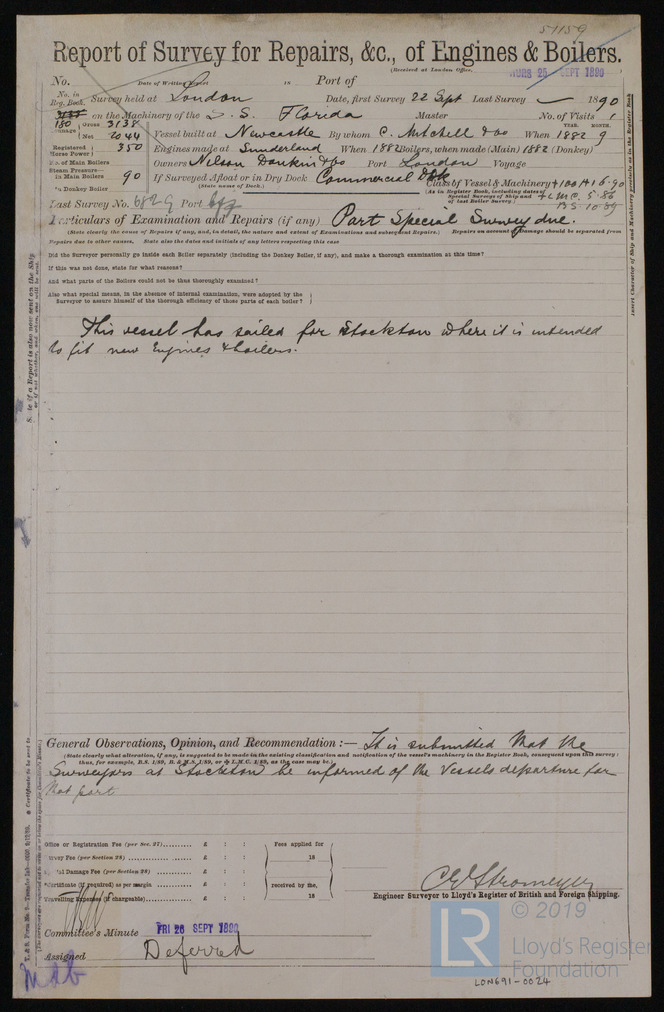 51159
Report of Survey for Repairs, &c., of Engines & Boilers.
(Received at London Office,
THURS 25 SEPT 1890
No. Date of Writing Report 18 Port of
No. in Reg. Book. Survey held at London Date, first Survey 22 Sept Last Survey 1890
180 on the Machinery of the S. S. Florida Master No. of Visits 1
Tonnage Gross 3138 Net 2044 Vessel built at Newcastle By whom C. Mitchell & Co When 1882 9
YEAR. MONTH.
Registered Horse Power 350 Engines made at Sunderland When 1882 Boilers, when made (Main) 1882 (Donkey)
No. of Main Boilers Owners Nelson Donkin & Co Port London Voyage
Steam Pressure— in Main Boilers 90 If Surveyed Afloat or in Dry Dock Commercial Dk
(State name of Dock.)
in Donkey Boiler Class of Vessel & Machinery +100A1 6.90
(As in Register Book, including dates of Special Surveys of Ship and of last Boiler Survey.) + LMC. 5.86
BS 10.89
Last Survey No. 6829 Port
Particulars of Examination and Repairs (if any) Part Special Survey due.
(State clearly the cause of Repairs if any, and, in detail, the nature and extent of Examinations and subsequent Repairs.) Repairs on account of Damage should be separated from
Repairs due to other causes. State also the dates and initials of any letters respecting this case
Did the Surveyor personally go inside each Boiler separately (including the Donkey Boiler, if any), and make a thorough examination at this time?
If this was not done, state for what reasons?
And what parts of the Boilers could not be thus thoroughly examined?
Also what special means, in the absence of internal examination, were adopted by the
Surveyor to assure himself of the thorough efficiency of those parts of each boiler?
This vessel has sailed for Stockton where it is intended
to fit new Engines & boilers.
General Observations, Opinion, and Recommendation :— It is submitted that the
(State clearly what alteration, if any, is suggested to be made in the existing classification and notification of the vessel's machinery in the Register Book, consequent upon this survey :
thus, for example, B.S. 1/89, B. & M.S. 1/89, or + L.M.C. 1/89, as the case may be.)
Surveyors at Stockton be informed of the Vessels departure for
that port
Office or Registration Fee (per Sec. 27).......... £ : :
Survey Fee (per Section 28) .......... £ : :
Special Damage Fee (per Section 28) .......... £ : :
Certificate (if required) as per margin .......... £ : :
Travelling Expenses (if chargeable).......... £ : :
Fees applied for
18
received by me,
18
C E Stromeyer
Engineer Surveyor to Lloyd's Register of British and Foreign Shipping.
Committee's Minute FRI 26 SEPT 1890
Assigned Deferred
LR
© 2019
Lloyd's Register
Foundation
LON691-0024